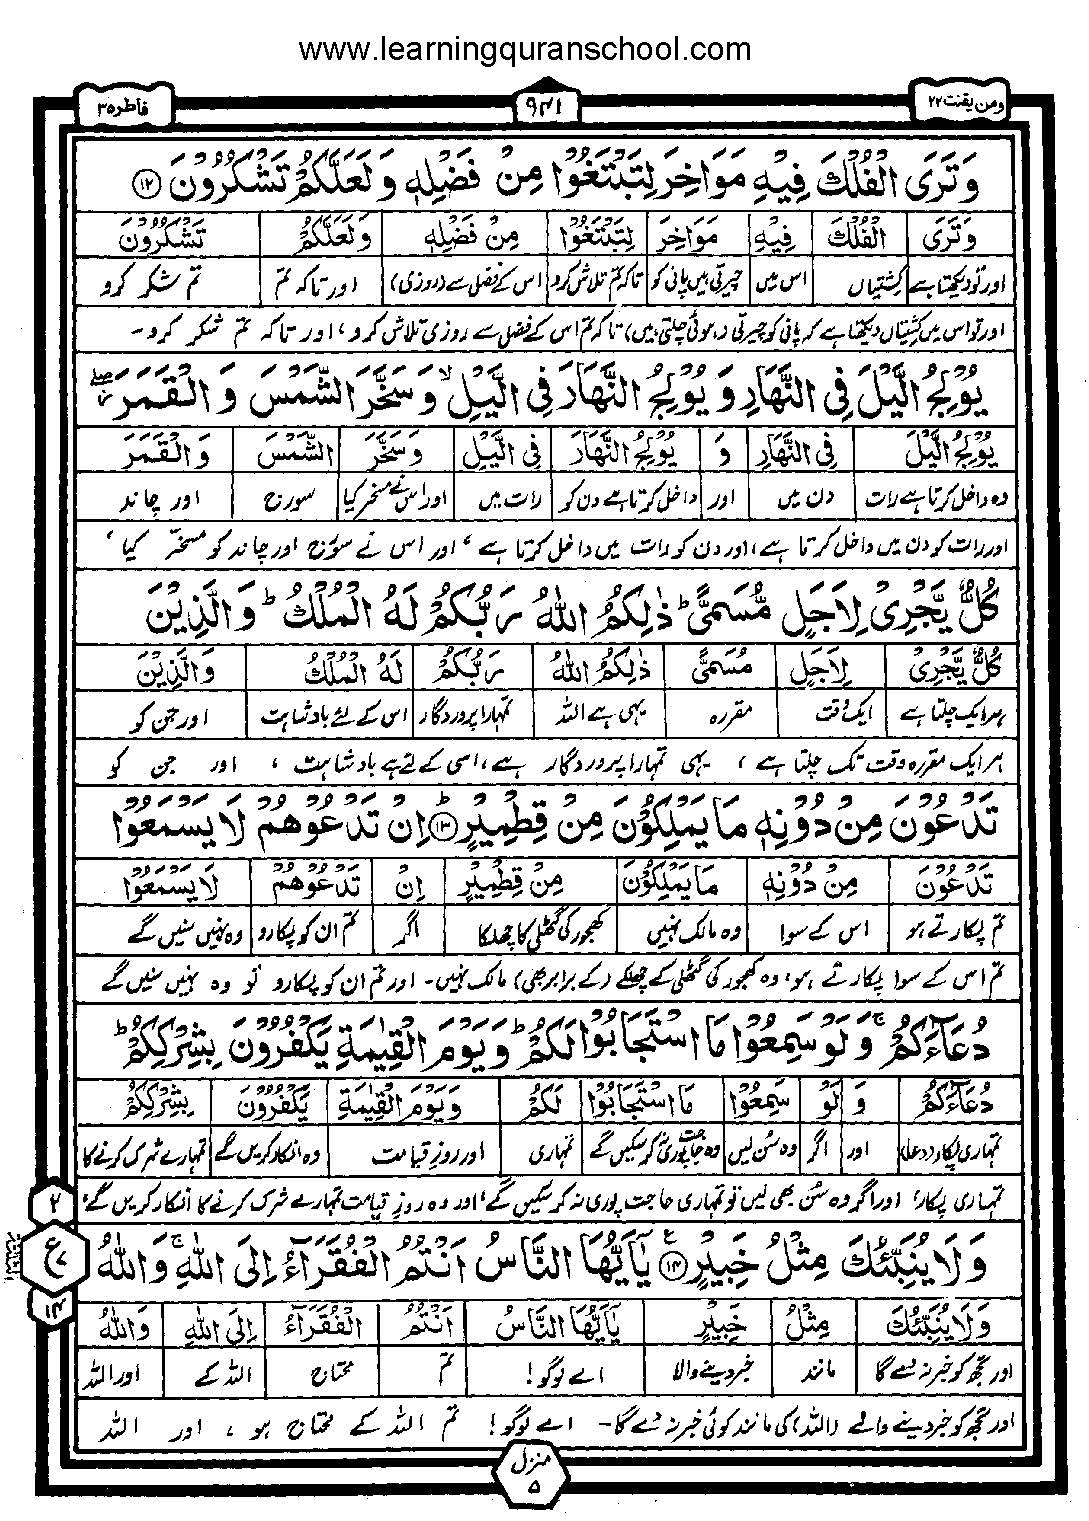 www.learningquranschool.com
ومن یقنت ۲۲
۹۴۱
فاطر ۳۵
وَتَرَى الْفُلْكَ فِيْهِ مَوَاخِرَ لِتَبْتَغُوْا مِنْ فَضْلِهٖ وَلَعَلَّكُمْ تَشْكُرُوْنَ ﴿۱۲﴾
وَتَرَى الْفُلْكَ فِيْهِ مَوَاخِرَ لِتَبْتَغُوْا مِنْ فَضْلِهٖ وَلَعَلَّكُمْ تَشْكُرُوْنَ
اور تو دیکھتا ہے کشتیاں اس میں چیرتی ہیں پانی کو تاکہ تم تلاش کرو اس کے فضل سے (روزی) اور تاکہ تم تم شکر کرو
اور تو اس میں کشتیاں دیکھتا ہے کہ پانی کو چیرتی (ہوئی چلتی ہیں) تاکہ تم اس کے فضل سے روزی تلاش کرو، اور تاکہ تم شکر کرو۔
يُوْلِجُ الَّيْلَ فِى النَّهَارِ وَ يُوْلِجُ النَّهَارَ فِى الَّيْلِ ۙ وَسَخَّرَ الشَّمْسَ وَ الْقَمَرَ ۖ
يُوْلِجُ الَّيْلَ فِى النَّهَارِ وَ يُوْلِجُ النَّهَارَ فِى الَّيْلِ وَسَخَّرَ الشَّمْسَ وَالْقَمَرَ
وہ داخل کرتا ہے رات دن میں اور داخل کرتا ہے دن کو رات میں اور اس نے مسخر کیا سورج اور چاند
اور رات کو دن میں داخل کرتا ہے، اور دن کو رات میں داخل کرتا ہے، اور اس نے سورج اور چاند کو مسخر کیا،
كُلٌّ يَّجْرِىْ لِاَجَلٍ مُّسَمًّى ؕ ذٰلِكُمُ اللّٰهُ رَبُّكُمْ لَهُ الْمُلْكُ ؕ وَالَّذِيْنَ
كُلٌّ يَّجْرِىْ لِاَجَلٍ مُّسَمًّى ذٰلِكُمُ اللّٰهُ رَبُّكُمْ لَهُ الْمُلْكُ وَالَّذِيْنَ
ہر ایک چلتا ہے ایک وقت مقررہ یہی ہے اللہ تمہارا پروردگار اس کے لئے بادشاہت اور جن کو
ہر ایک مقررہ وقت تک چلتا ہے، یہی تمہارا پروردگار ہے، اسی کے لئے ہے بادشاہت، اور جن کو
تَدْعُوْنَ مِنْ دُوْنِهٖ مَا يَمْلِكُوْنَ مِنْ قِطْمِيْرٍ ؕ ﴿۱۳﴾ اِنْ تَدْعُوْهُمْ لَا يَسْمَعُوْا
تَدْعُوْنَ مِنْ دُوْنِهٖ مَا يَمْلِكُوْنَ مِنْ قِطْمِيْرٍ اِنْ تَدْعُوْهُمْ لَا يَسْمَعُوْا
تم پکارتے ہو اس کے سوا وہ مالک نہیں کھجور کی گٹھلی کا چھلکا اگر تم ان کو پکارو وہ نہیں سنیں گے
تم اس کے سوا پکارتے ہو، وہ کھجور کی گٹھلی کے چھلکے (کے برابر بھی) مالک نہیں۔ اور تم ان کو پکارو تو وہ نہیں سنیں گے
دُعَآءَكُمْ ۚ وَلَوْ سَمِعُوْا مَا اسْتَجَابُوْا لَكُمْ ؕ وَيَوْمَ الْقِيٰمَةِ يَكْفُرُوْنَ بِشِرْكِكُمْ ؕ
دُعَآءَكُمْ وَ لَوْ سَمِعُوْا مَا اسْتَجَابُوْا لَكُمْ وَيَوْمَ الْقِيٰمَةِ يَكْفُرُوْنَ بِشِرْكِكُمْ
تمہاری پکار (دعا) اور اگر وہ سن لیں وہ حاجت پوری نہ کر سکیں گے تمہاری اور روز قیامت وہ انکار کریں گے تمہارے شرک کرنے کا
تمہاری پکار، اور اگر وہ سن بھی لیں تو تمہاری حاجت پوری نہ کر سکیں گے، اور وہ روز قیامت تمہارے شرک کرنے کا انکار کریں گے،
۲
ع
۷
۱۴
وَلَا يُنَبِّئُكَ مِثْلُ خَبِيْرٍ ﴿۱۴﴾ يٰٓاَيُّهَا النَّاسُ اَنْتُمُ الْفُقَرَآءُ اِلَى اللّٰهِ ۚ وَاللّٰهُ
وَلَا يُنَبِّئُكَ مِثْلُ خَبِيْرٍ يٰٓاَيُّهَا النَّاسُ اَنْتُمُ الْفُقَرَآءُ اِلَى اللّٰهِ وَاللّٰهُ
اور تجھ کو خبر نہ دے گا مانند خبر دینے والا اے لوگو! تم محتاج اللہ کے اور اللہ
اور تجھ کو خبر دینے والے (اللہ) کی مانند کوئی خبر نہ دے گا۔ اے لوگو! تم اللہ کے محتاج ہو، اور اللہ
منزل ۵